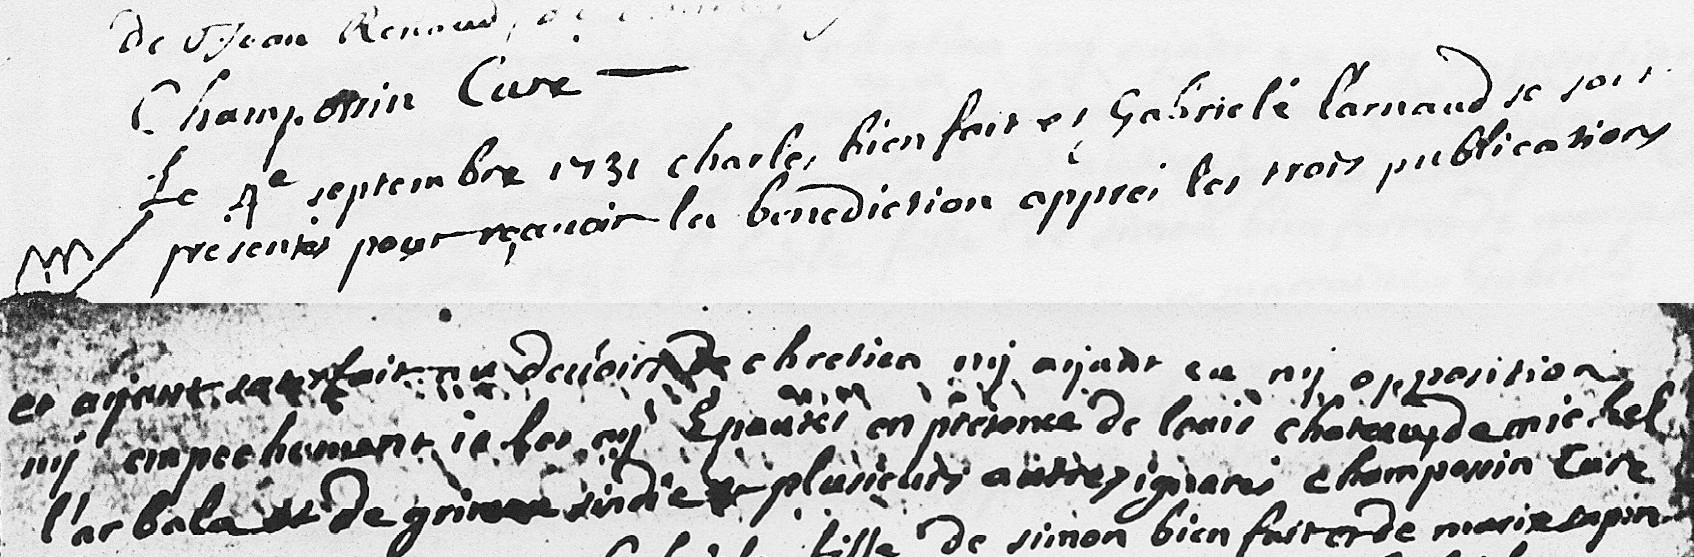 de St Jean Renaud, de
Champonin Cure
Le 4e septembre 1731 charles bienfait et Gabrielé l'arnaud se sont
présentés pour reçauoir la benediction apprei les trois publications
et aÿant satisfait au devoir de chretien nij aÿant eu nij opposition
nij empechement ie les aÿ Epousés en présence de louis chateaux de michel
l'arbala et de sindic plusieurs autres ignares Champonin Cure
fille de simon bienfait et de marie sapin